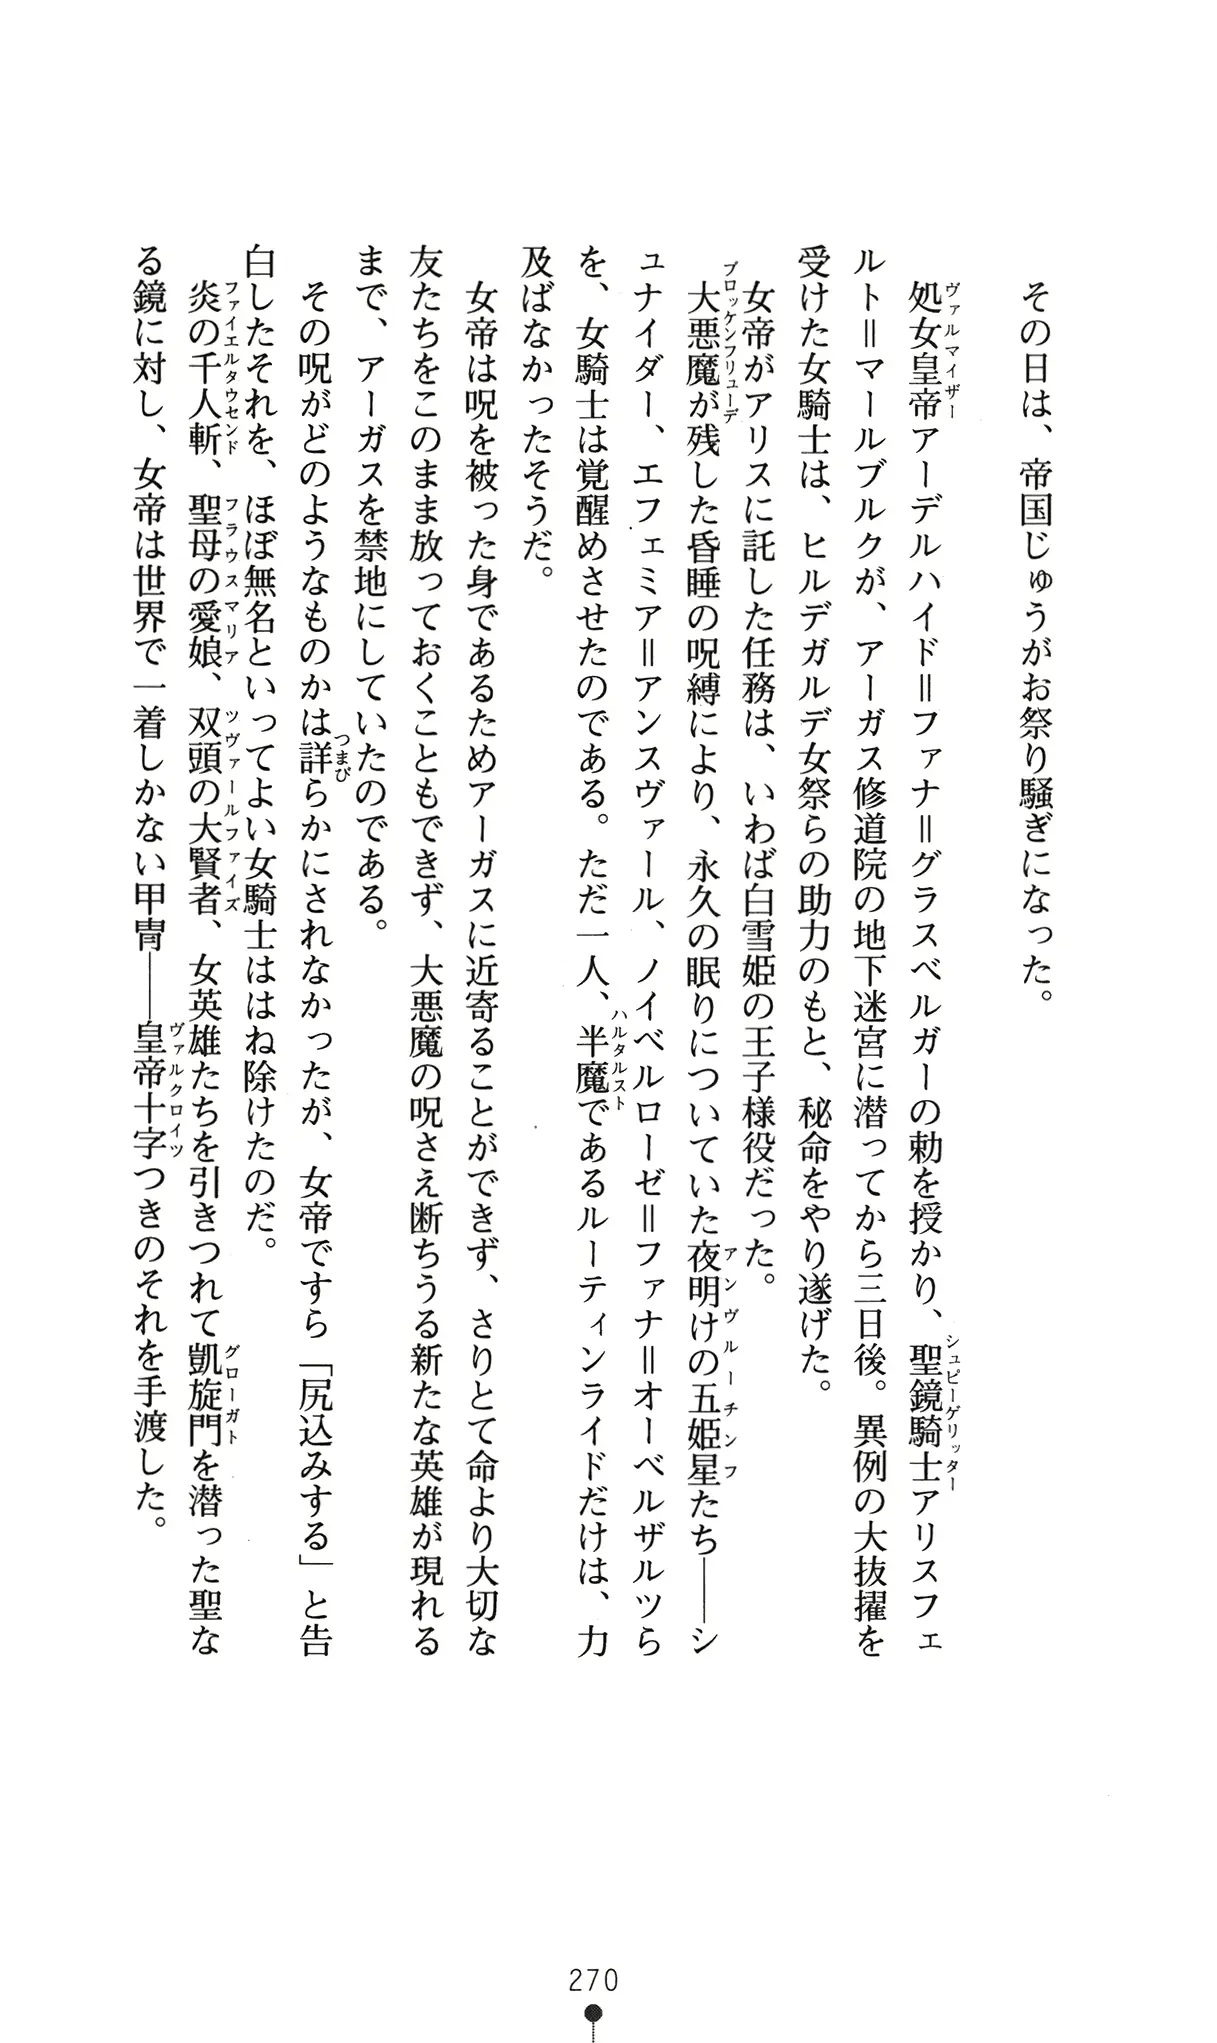 その日は、帝国じゅうがお祭り騒ぎになった。
処女皇帝アーデルハイド＝ファナ＝グラスベルガーの勅を授かり、聖鏡騎士アリスフェ
ヴァルマイザー
シュピーゲリッター
ルト＝マールブルクが、アーガス修道院の地下迷宮に潜ってから三日後。異例の大抜擢を
受けた女騎士は、ヒルデガルデ女祭らの助力のもと、秘命をやり遂げた。
女帝がアリスに託した任務は、いわば白雪姫の王子様役だった。
大悪魔が残した昏睡の呪縛により、永久の眠りについていた夜明けの五姫星たち――シ
ブロッケンフリューデ
アンヴルーチンフ
ュナイダー、エフェミア＝アンスヴァール、ノイベルローゼ＝ファナ＝オーベルザルツら
を、女騎士は覚醒めさせたのである。ただ一人、半魔であるルーティンライドだけは、力
ハルタルスト
及ばなかったそうだ。
女帝は呪を被った身であるためアーガスに近寄ることができず、さりとて命より大切な
友たちをこのまま放っておくこともできず、大悪魔の呪さえ断ちうる新たな英雄が現れる
まで、アーガスを禁地にしていたのである。
その呪がどのようなものかは詳らかにされなかったが、女帝ですら「尻込みする」と告
つまび
白したそれを、ほぼ無名といってよい女騎士ははね除けたのだ。
炎の千人斬、聖母の愛娘、双頭の大賢者、女英雄たちを引きつれて凱旋門を潜った聖な
ファイエルタウセンド
フラウスマリア
ツヴァールファイズ
グローガト
る鏡に対し、女帝は世界で一着しかない甲冑――皇帝十字つきのそれを手渡した。
ヴァルクロイツ
270